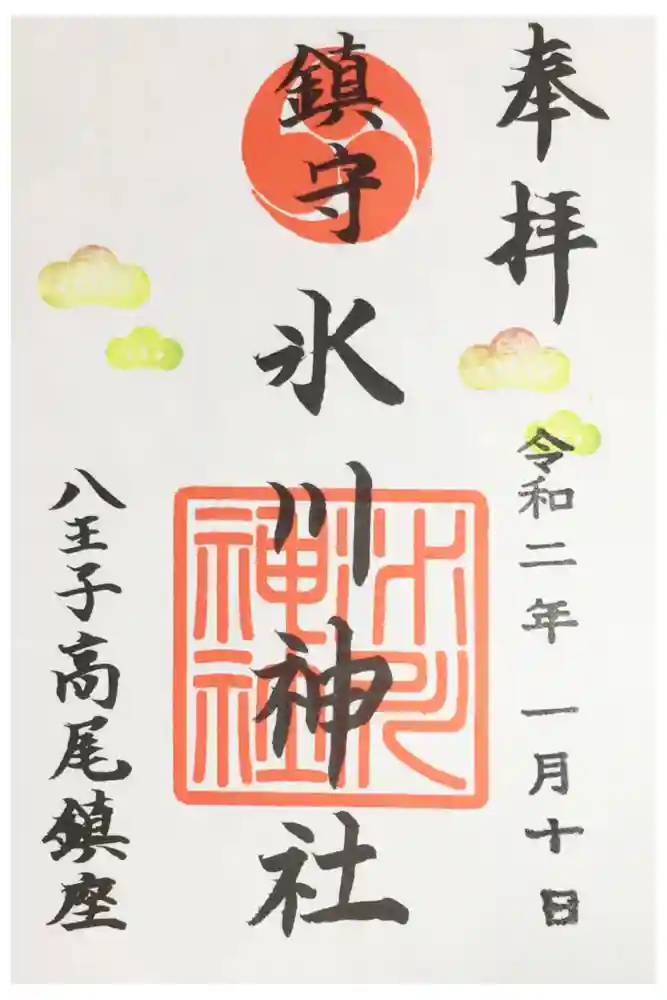 奉拝
令和二年一月十日
鎮守
氷川神社
氷川
神社
八王子高尾鎮座